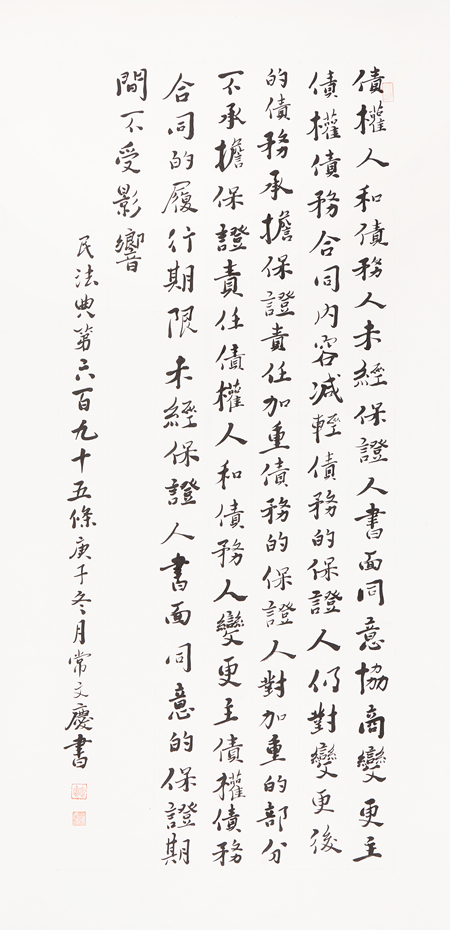 債權人和債務人未經保證人書面同意協商變更主
債權債務合同內容減輕債務的保證人仍對變更後
的債務承擔保證責任加重債務的保證人對加重的部分
不承擔保證責任債權人和債務人變更主債權債務
合同的履行期限未經保證人書面同意的保證期
間不受影響
民法典第六百九十五條庚子冬月常文慶書